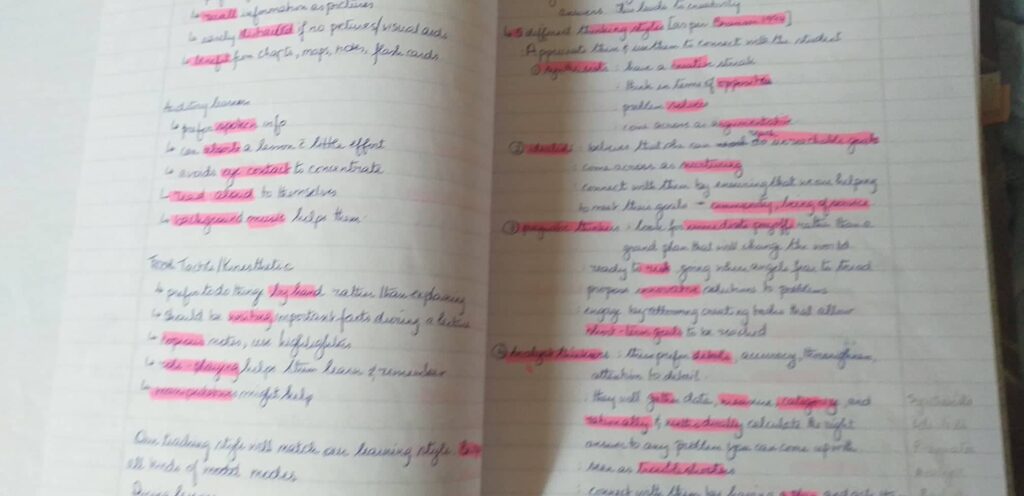 ↳ recall information as pictures
↳ easily distracted if no pictures/visual aids
↳ benefit from charts, maps, notes, flash cards
Auditory learners
↳ prefer spoken info
↳ can absorb a lesson c̄ little effort
↳ avoids eye contact to concentrate
↳ read aloud to themselves
↳ background music helps them
Tactile/Kinesthetic
↳ prefers to do things by hand rather than explaining
↳ should be writing important facts during a lecture
↳ notes, use highlighters
↳ role playing helps them learn & remember
↳ might help
Our teaching style will match our learning style
all kinds of modes
answers. leads to creativity
↳ 5 different thinking styles [as per
Appreciate them & use them to connect with the student
① : have a streak
· think in terms of opposites
· problem
· come across as argumentative
② : believes that she can reach goals
· come across as nurturing
· connect with them by ensuring that we are helping
to meet their goals - community, being of service
③ pragmatic thinkers : look for immediate payoff rather than a
grand plan that will change the world
· ready to risk going where angels fear to tread
· propose innovative solutions to problems
· engage by that allow
short-term goals to be reached
④ Analyst thinkers : these prefer details, accuracy, thoroughness,
attention to detail.
· they will gather data, measure, category, and
rationally & methodically calculate the right
answer to any problem you can come up with
· seen as
· connect with them by having a plan